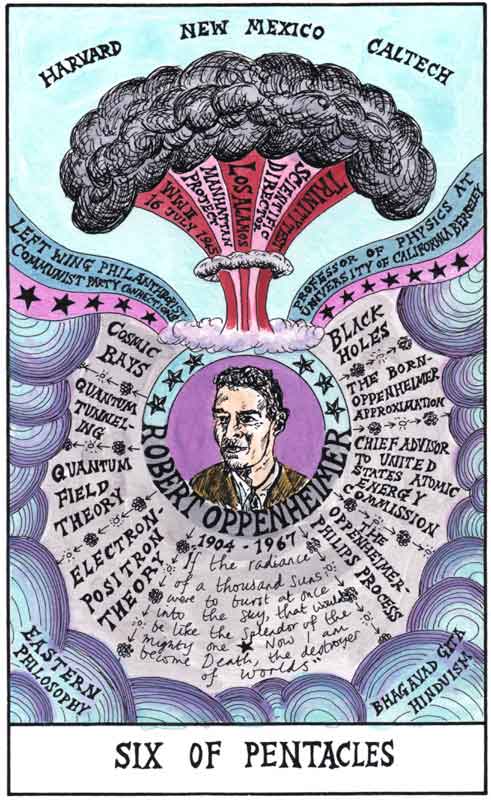 HARVARD
NEW MEXICO
CALTECH
WWII
16 JULY 1945
MANHATTAN
PROJECT
LOS ALAMOS
SCIENTIFIC
DIRECTOR
TRINITY TEST
LEFT WING PHILANTHROPIST
COMMUNIST PARTY CONNECTIONS
PROFESSOR OF PHYSICS AT
UNIVERSITY OF CALIFORNIA, BERKELEY
COSMIC
RAYS
QUANTUM
TUNNEL-
ING
QUANTUM
FIELD
THEORY
ELECTRON-
POSITRON
THEORY
BLACK
HOLES
THE BORN-
OPPENHEIMER
APPROXIMATION
CHIEF ADVISOR
TO UNITED
STATES ATOMIC
ENERGY
COMMISSION
THE
OPPENHEIMER-
PHILIPS PROCESS
ROBERT OPPENHEIMER
1904 - 1967
"If the radiance
of a thousand suns
were to burst at once
into the sky, that would
be like the splendor of the
mighty one ★ Now I am
become Death, the destroyer
of worlds"
EASTERN
PHILOSOPHY
BHAGAVAD GITA
HINDUISM
SIX OF PENTACLES